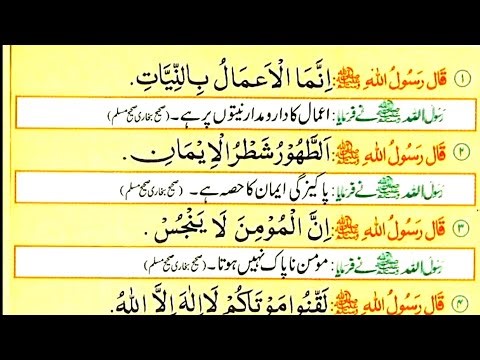 ۱ قَالَ رَسُولُ اللهِ ﷺ: اِنَّمَا الْاَعمَالُ بِالنِّيَّاتِ.
رَسُولُ اللہ ﷺ نے فرمایا: اعمال کا دارومدار نیتوں پر ہے۔ (صحیح بخاری صحیح مسلم)
۲ قَالَ رَسُولُ اللهِ ﷺ: اَلطَّهُوْرُ شَطْرُ الْاِيْمَانِ.
رَسُولُ اللہ ﷺ نے فرمایا: پاکیزگی ایمان کا حصہ ہے۔ (صحیح بخاری صحیح مسلم)
۳ قَالَ رَسُولُ اللهِ ﷺ: اِنَّ الْمُوْمِنَ لَا يَنْجُسُ.
رَسُولُ اللہ ﷺ نے فرمایا: مومن ناپاک نہیں ہوتا۔ (صحیح بخاری صحیح مسلم)
۴ قَالَ رَسُولُ اللهِ ﷺ: لَقِّنُوا مَوْتَاكُمْ لَا اِلٰهَ اِلَّا اللهُ.